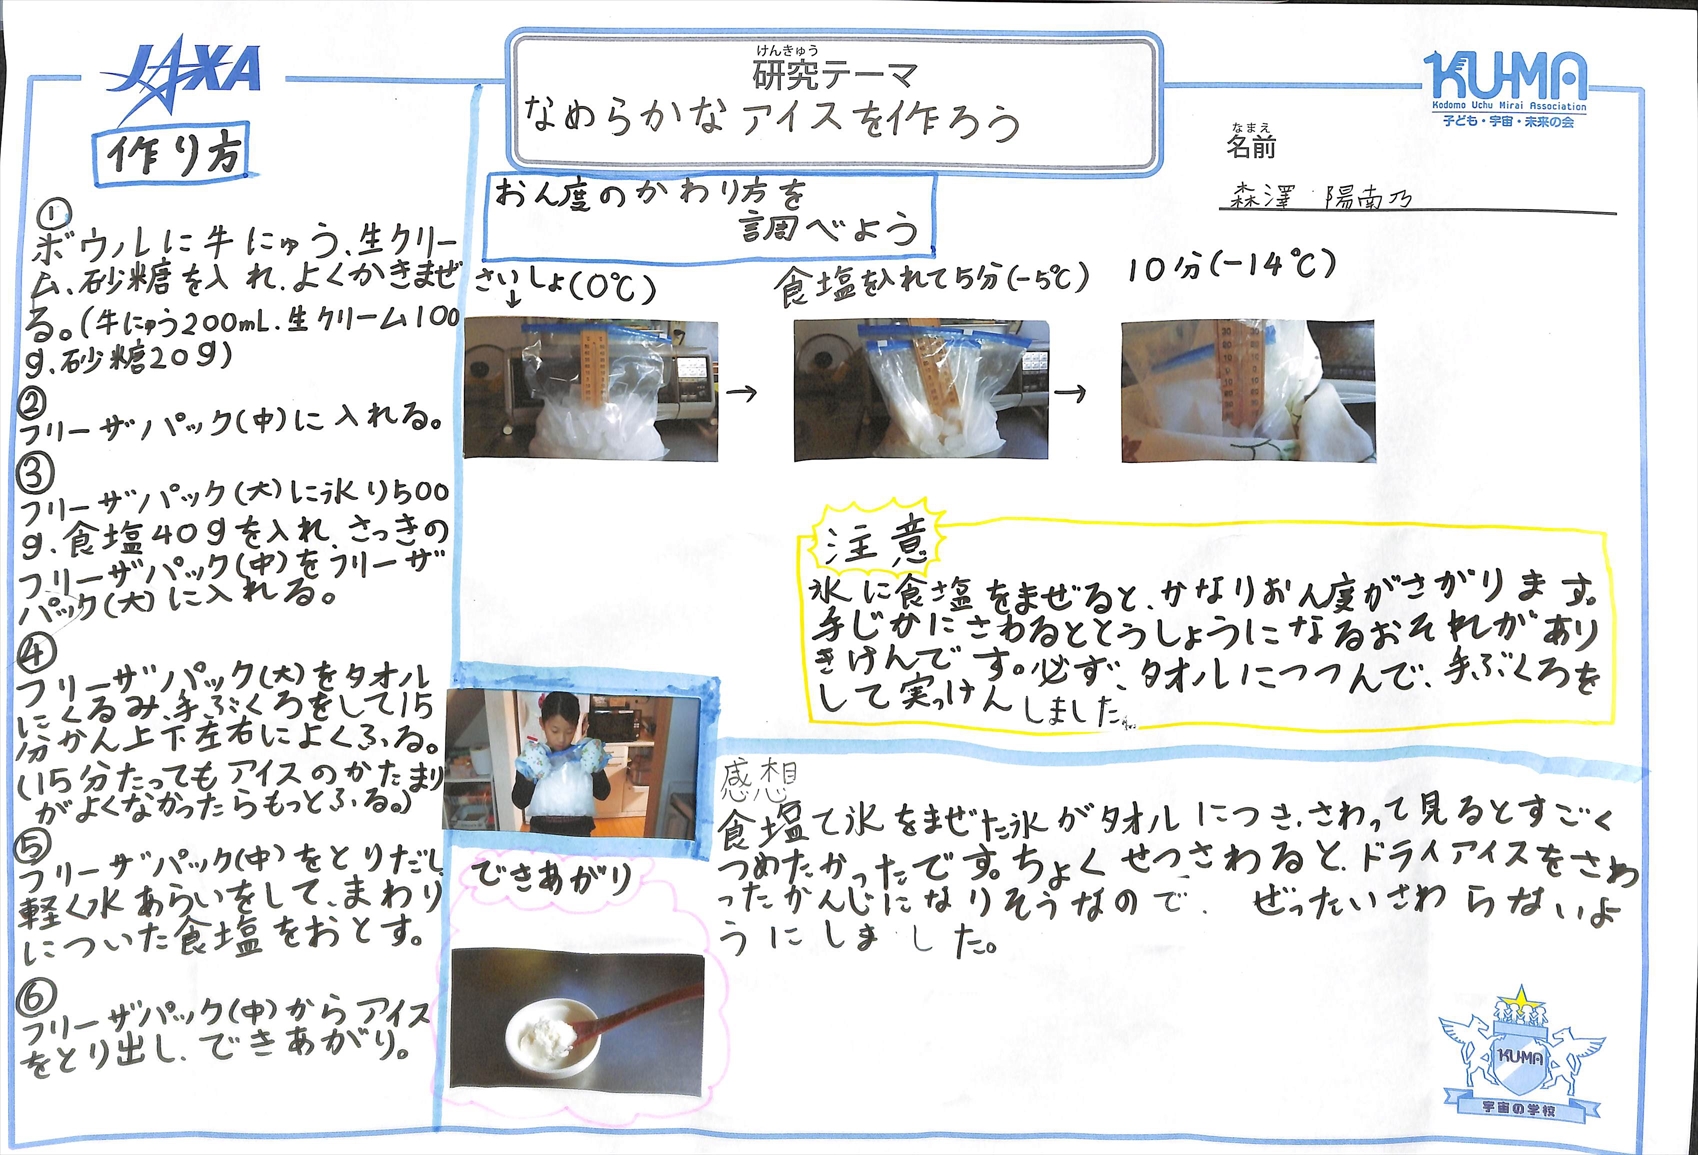 JAXA
けんきゅう
研究テーマ
なめらかなアイスを作ろう
KU-MA
Kodomo Uchu Mirai Association
子ども・宇宙・未来の会
なまえ
名前
森澤 陽南乃
作り方
①
ボウルに牛にゅう、生クリー
ム、砂糖を入れ、よくかきまぜ
る。(牛にゅう200mL、生クリーム100
g、砂糖20g)
②
フリーザパック(中)に入れる。
③
フリーザパック(大)に氷り500
g、食塩40gを入れ、さっきの
フリーザパック(中)をフリーザ
パック(大)に入れる。
④
フリーザパック(大)をタオル
にくるみ、手ぶくろをして15
分かん上下左右によくふる。
(15分たってもアイスのかたまり
がよくなかったらもっとふる。)
⑤
フリーザパック(中)をとりだし
軽く水あらいをして、まわり
についた食塩をおとす。
⑥
フリーザパック(中)からアイス
をとり出し、できあがり。
おん度のかわり方を
調べよう
さいしょ(0℃)
↓
食塩を入れて5分(-5℃)
10分(-14℃)
→
→
注意
氷に食塩をまぜると、かなりおん度がさがります。
手じかにさわるととうしょうになるおそれがあり
きけんです。必ず、タオルにつつんで、手ぶくろを
して実っけんしました。
できあがり
感想
食塩て氷をまぜた氷がタオルにつき、さわって見るとすごく
つめたかったです。ちょくせつさわると、ドライアイスをさわ
ったかんじになりそうなので、ぜったいさわらないよ
うにしました。
KU-MA
宇宙の学校